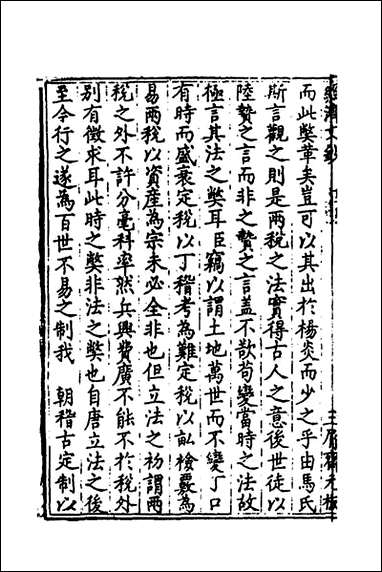 而此獘革矣豈可以其出於楊炎而少之乎由馬氏
斯言觀之則是兩税之法實得古人之意後世徒以
陸贄之言而非之贄之言盖不欲苟變當時之法故
極言其法之獘耳臣竊以謂土地萬世而不變丁口
有時而盛衰定税以丁稽考為難定税以畝檢覈為
易兩税以資産為宗未必全非也但立法之初謂兩
税之外不許分毫科率然兵興費廣不能不於税外
別有徵求耳此時之獘非法之獘也自唐立法之後
至今行之遂為百世不易之制我 朝稽古定制以